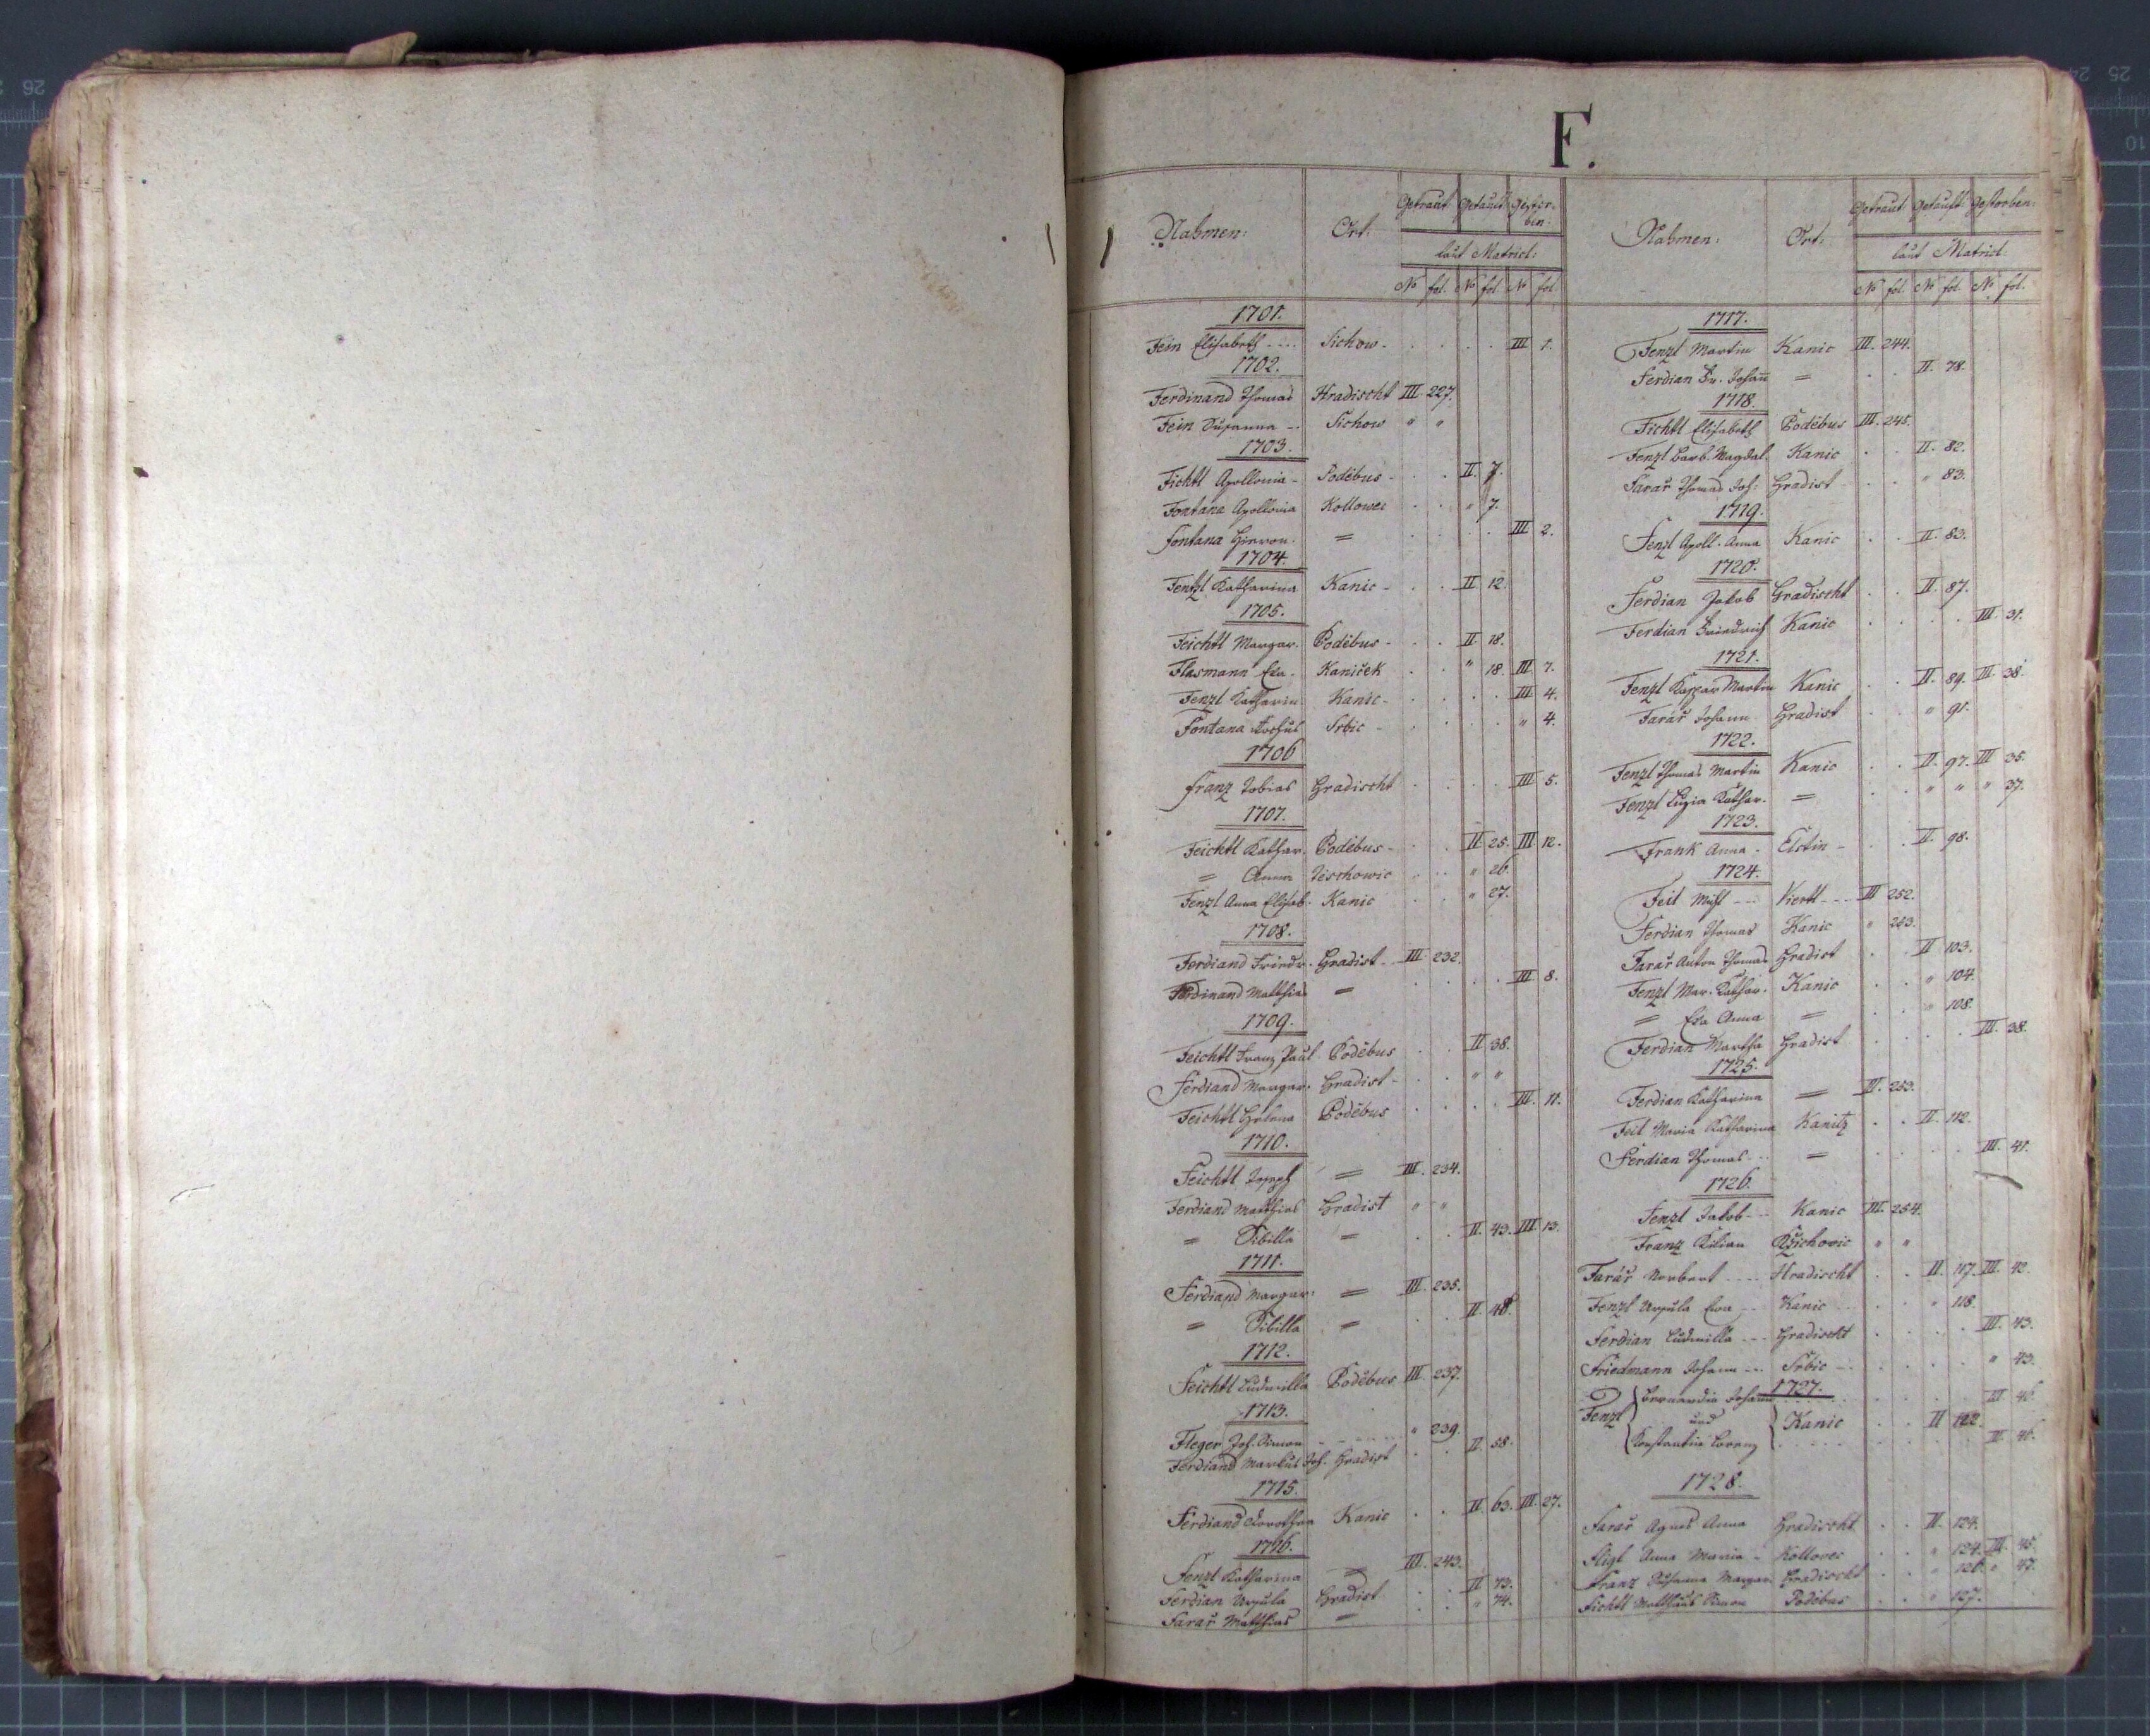 F.
Nahmen: Ort: Getraut Getauft Gestorben:
laut Matricl:
No fol. No fol. No fol.
1701.
Fein Elisabeth Sichow. III 1.
1702.
Ferdinand Thomas Hradischt III 227.
Fein Susanna Sichow " "
1703.
Fichtl Apollonia Poděbus II. 7.
Fontana Apollonia Kollowec " 7.
Fontana Hieron. = III 2.
1704.
Fentzl Katharina Kanic II 12.
1705.
Feichtl Margar. Poděbus II 18.
Flasmann Eva Kaniček " 18. III 7.
Fenzl Katharin. Kanic III 4.
Fontana Rochus Srbic " 4.
1706
Franz Tobias Gradischt III 5.
1707.
Feichtl Kathar. Poděbus II 25. III 12.
= Anna " 26.
Fenzl Anna Elisab. Kanic " 27.
1708.
Ferdiand Friedr. Gradist III 232.
Ferdinand Matthias = III 8.
1709.
Feichtl Franz Paul Poděbus II 38.
Ferdiand Margar. Gradist " "
Feichtl Helena Poděbus III. 11.
1710.
Feichtl Joseph = III. 234.
Ferdiand Matthias Gradist " "
= Sibilla = II. 43. III 13.
1711.
Ferdiand Margar. = III 235.
= Sibilla = II. 48.
1712.
Feichtl Ludmilla Poděbus III 237.
1713.
Fleger Joh. Simon " 239.
Ferdiand Markus Joh. Gradist II. 58.
1715.
Ferdiand Dorothea Kanic II 63. III. 27.
1716.
Fenzl Katharina = III. 243.
Ferdian Ursula Gradist II 73.
Farař Matthias = " 74.
Nahmen: Ort: Getraut Getauft Gestorben:
laut Matricl:
No fol. No fol. No fol.
1717.
Fenzl Martin Kanic III. 244.
Ferdian Fr. Johañ = II. 78.
1718.
Fichtl Elisabeth Poděbus III. 245.
Fenzl Barb. Magdal. Kanic II. 82.
Farař Thomas Joh: Gradist " 83.
1719.
Fenzl Apoll. Anna Kanic II. 83.
1720.
Ferdian Jakob Gradischt II. 87.
Ferdian Friedrich Kanic III. 31.
1721.
Fenzl Kaspar Martin Kanic II. 89. III. 38.
Farář Johann Gradist " 91.
1722.
Fenzl Thomas Martin Kanic II. 97. III 35.
Fenzl Luzia Kathar. = " " " 37.
1723.
Frank Anna Elstin II. 98.
1724.
Feit Viertl III 252.
Ferdian Thomas Kanic " 253.
Farař Anton Thomas Gradist II 103.
Fenzl Mar. Kathar. Kanic " 104.
= Eva Anna = " 108.
Ferdian Martha Gradist III. 38.
1725.
Ferdian Katharina = III. 253.
Feit Maria Katharina Kanitz II. 112.
Ferdian Thomas = III. 41.
1726.
Fenzl Jakob Kanic III. 254.
Franz Kilian " "
Farář Norbert Hradischt II. 117. III. 42.
Fenzl Ursula Eva Kanic " 118.
Ferdian Ludmilla Gradischt III. 43.
Friedmann Johann Srbic " 43.
1727.
Bernardin Johann III 46.
Fenzl und Kanic II 122.
Konstantin Lorenz 46.
1728.
Farař Agnes Anna Gradischt II. 124.
Fligl Anna Maria Kollovec " 124. III. 45.
Franz Susanna Margar. Gradischt " 126. " 47.
Fichtl Matthäus Simon Poděbus " 127.